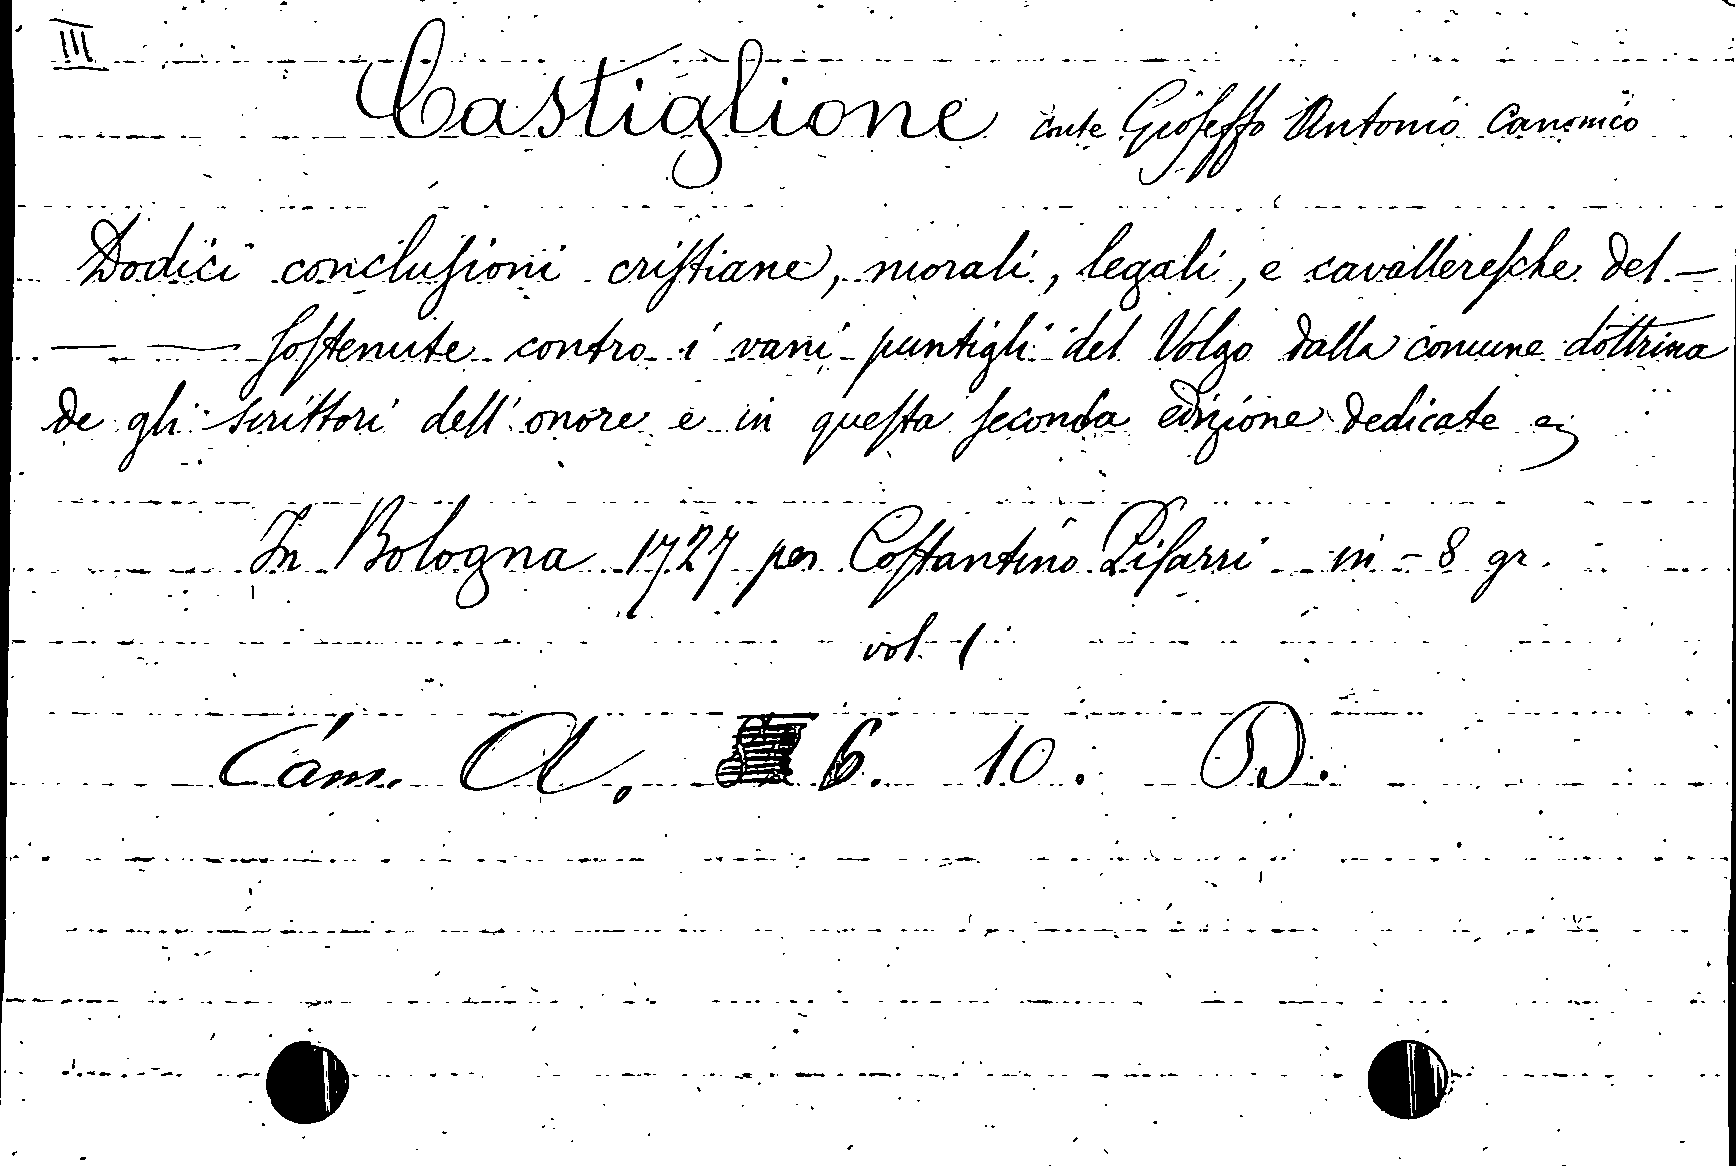 III
Castiglione conte Gioseffo Antonio Canonico
Dodici conclusioni cristiane, morali, legali, e cavalleresche del —
— — sostenute contro i vani puntigli del Volgo dalla comune dottrina
de gli scrittori dell' onore e in questa seconda edizione dedicate
In Bologna 1727 per Costantino Pisarri in-8 gr.
vol. 1
Cam. A. 6. 10. D.